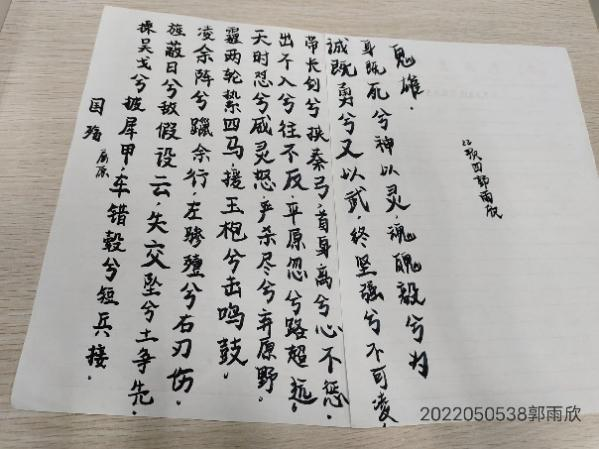 国殇 屈原
操吴戈兮被犀甲.车错毂兮短兵接.
旌蔽日兮敌假设云.矢交坠兮士争先.
凌余阵兮躐余行.左骖殪兮右刃伤.
霾两轮絷四马.援玉枹兮击鸣鼓.
天时怼兮威灵怒.严杀尽兮弃原野.
出不入兮往不反.平原忽兮路超远.
带长剑兮挟秦弓.首身离兮心不惩.
诚既勇兮又以武.终坚强兮不可凌.
身既死兮神以灵.魂魄毅兮为
鬼雄.
四郭雨欣
2022050538郭雨欣